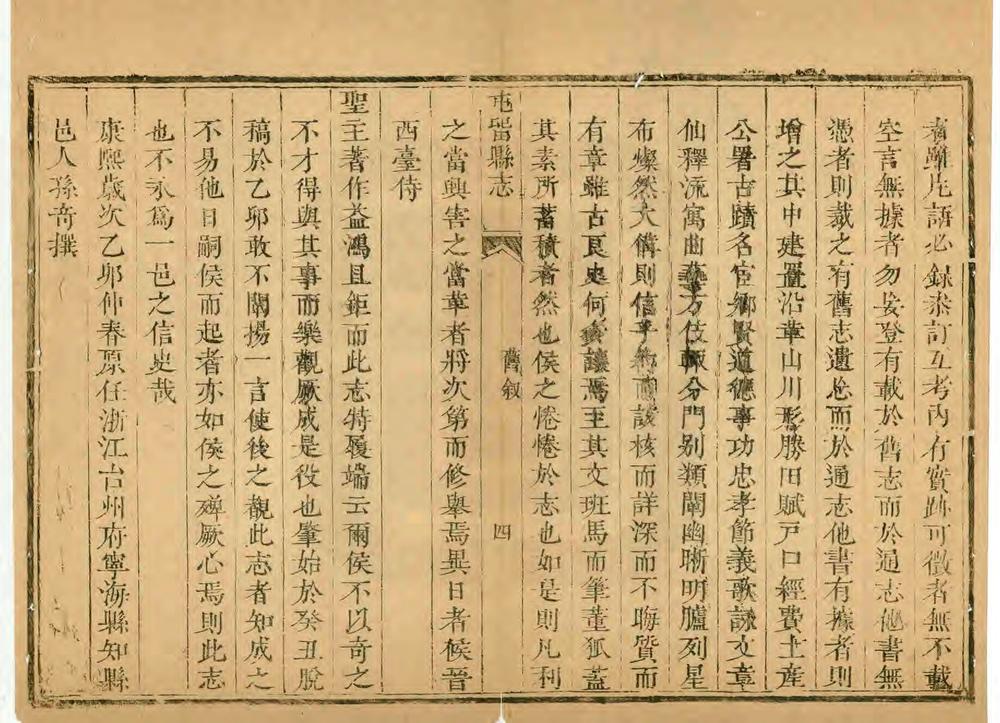 者雖片語必錄叅訂互考內有實跡可徵者無不載
空言無據者勿妄登有載於舊志而於通志他書無
憑者則裁之有舊志遺忘而於通志他書有據者則
增之其中建置沿革山川形勝田賦戸口經費土產
公署古蹟名宦鄉賢道德事功忠孝節義歌詠文章
仙釋流寓曲藝方伎輙分門别類闡幽晰明臚列星
布燦然大備則信乎約而該核而詳深而不晦質而
有章雖古良史何多讓焉至其文班馬而筆董狐葢
其素所蓄積者然也侯之惓惓於志也如是則凡利
屯留縣志
舊叙
四
之當興害之當革者將次第而修舉焉異日者侯晉
西臺侍
聖主著作益鴻且鉅而此志特履端云爾侯不以竒之
不才得與其事而樂觀厥成是役也肇始於癸丑脫
稿於乙卯敢不闡揚一言使後之觀此志者知成之
不易他日嗣侯而起者亦如侯之殫厥心焉則此志
也不永爲一邑之信史哉
康熙歲次乙卯仲春原任浙江台州府寧海縣知縣
邑人孫竒撰